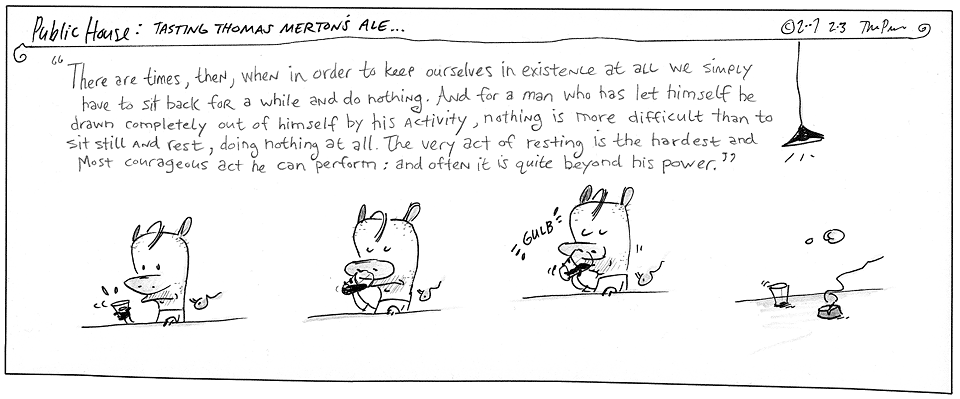 Public House: TASTING THOMAS MERTON'S ALE...
©2007 2·3
"There are times, then, when in order to keep ourselves in existence at all we simply
have to sit back for a while and do nothing. And for a man who has let himself be
drawn completely out of himself by his activity, nothing is more difficult than to
sit still and rest, doing nothing at all. The very act of resting is the hardest and
most courageous act he can perform: and often it is quite beyond his power."
GULB